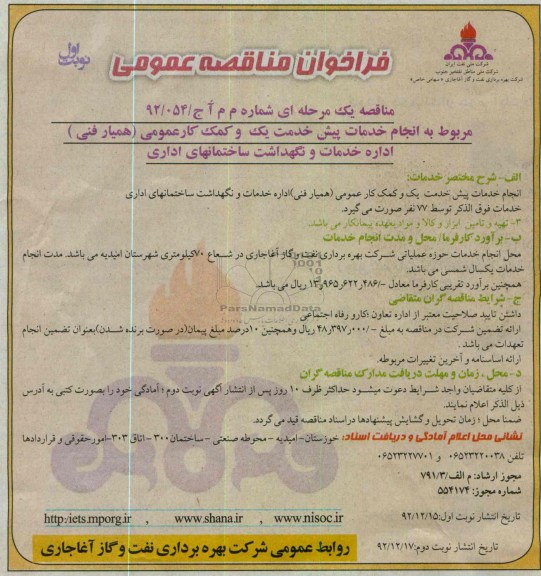 شرکت ملی نفت ایران
شرکت ملی مناطق نفتخیز جنوب
شرکت بهره برداری نفت و گاز آغاجاری «سهامی خاص»
نوبت اول
فراخوان مناقصه عمومی
مناقصه یک مرحله ای شماره م م آ ج/۹۲/۰۵۴
مربوط به انجام خدمات پیش خدمت یک و کمک کارعمومی (همیار فنی )
اداره خدمات و نگهداشت ساختمانهای اداری
الف- شرح مختصر خدمات:
انجام خدمات پیش خدمت یک و کمک کار عمومی (همیار فنی)اداره خدمات و نگهداشت ساختمانهای اداری
خدمات فوق الذکر توسط ۷۷ نفر صورت می گیرد.
۳- تهیه و تامین ابزار و کالا و مواد بعهده پیمانکار می باشد.
ب- برآورد کارفرما/ محل و مدت انجام خدمات
محل انجام خدمات حوزه عملیاتی شرکت بهره برداری نفت و گاز آغاجاری در شعاع ۷۰کیلومتری شهرستان امیدیه می باشد. مدت انجام
خدمات یکسال شمسی می باشد.
همچنین برآورد تقریبی کارفرما معادل -/۱۳٫۹۶۵٫۶۲۲٫۴۸۶ ریال می باشد.
ParsNamadData
ج- شرایط مناقصه گران متقاضی
داشتن تایید صلاحیت معتبر از اداره تعاون ،کار و رفاه اجتماعی
ارائه تضمین شرکت در مناقصه به مبلغ -/۴۸٫۳۹۷٫۰۰۰ ریال وهمچنین ۱۰درصد مبلغ پیمان(در صورت برنده شدن)بعنوان تضمین انجام
تعهدات می باشد .
ارائه اساسنامه و آخرین تغییرات مربوطه.
د- محل ، زمان و مهلت دریافت مدارک مناقصه گران
از کلیه متقاضیان واجد شرایط دعوت میشود حداکثر ظرف ۱۰ روز پس از انتشار آگهی نوبت دوم ؛ آمادگی خود را بصورت کتبی به آدرس
ذیل الذکر اعلام نمایند.
ضمنا محل ؛ زمان تحویل و گشایش پیشنهادها دراسناد مناقصه قید می گردد.
نشانی محل اعلام آمادگی و دریافت اسناد: خوزستان- امیدیه - محوطه صنعتی - ساختمان۳۰۰ - اتاق ۳۰۳-امورحقوقی و قراردادها
تلفن ۰۶۵۲۳۲۲۰۰۳۸ و ۰۶۵۲۳۲۲۷۷۰۱
مجوز ارشاد: م الف/۷۹۱/۳
شماره مجوز: ۵۵۴۱۷۴
تاریخ انتشار نوبت اول:۹۲/۱۲/۱۵ www.nisoc.ir , www.shana.ir , http:/iets.mporg.ir
تاریخ انتشار نوبت دوم:۹۲/۱۲/۱۷
روابط عمومی شرکت بهره برداری نفت وگاز آغاجاری